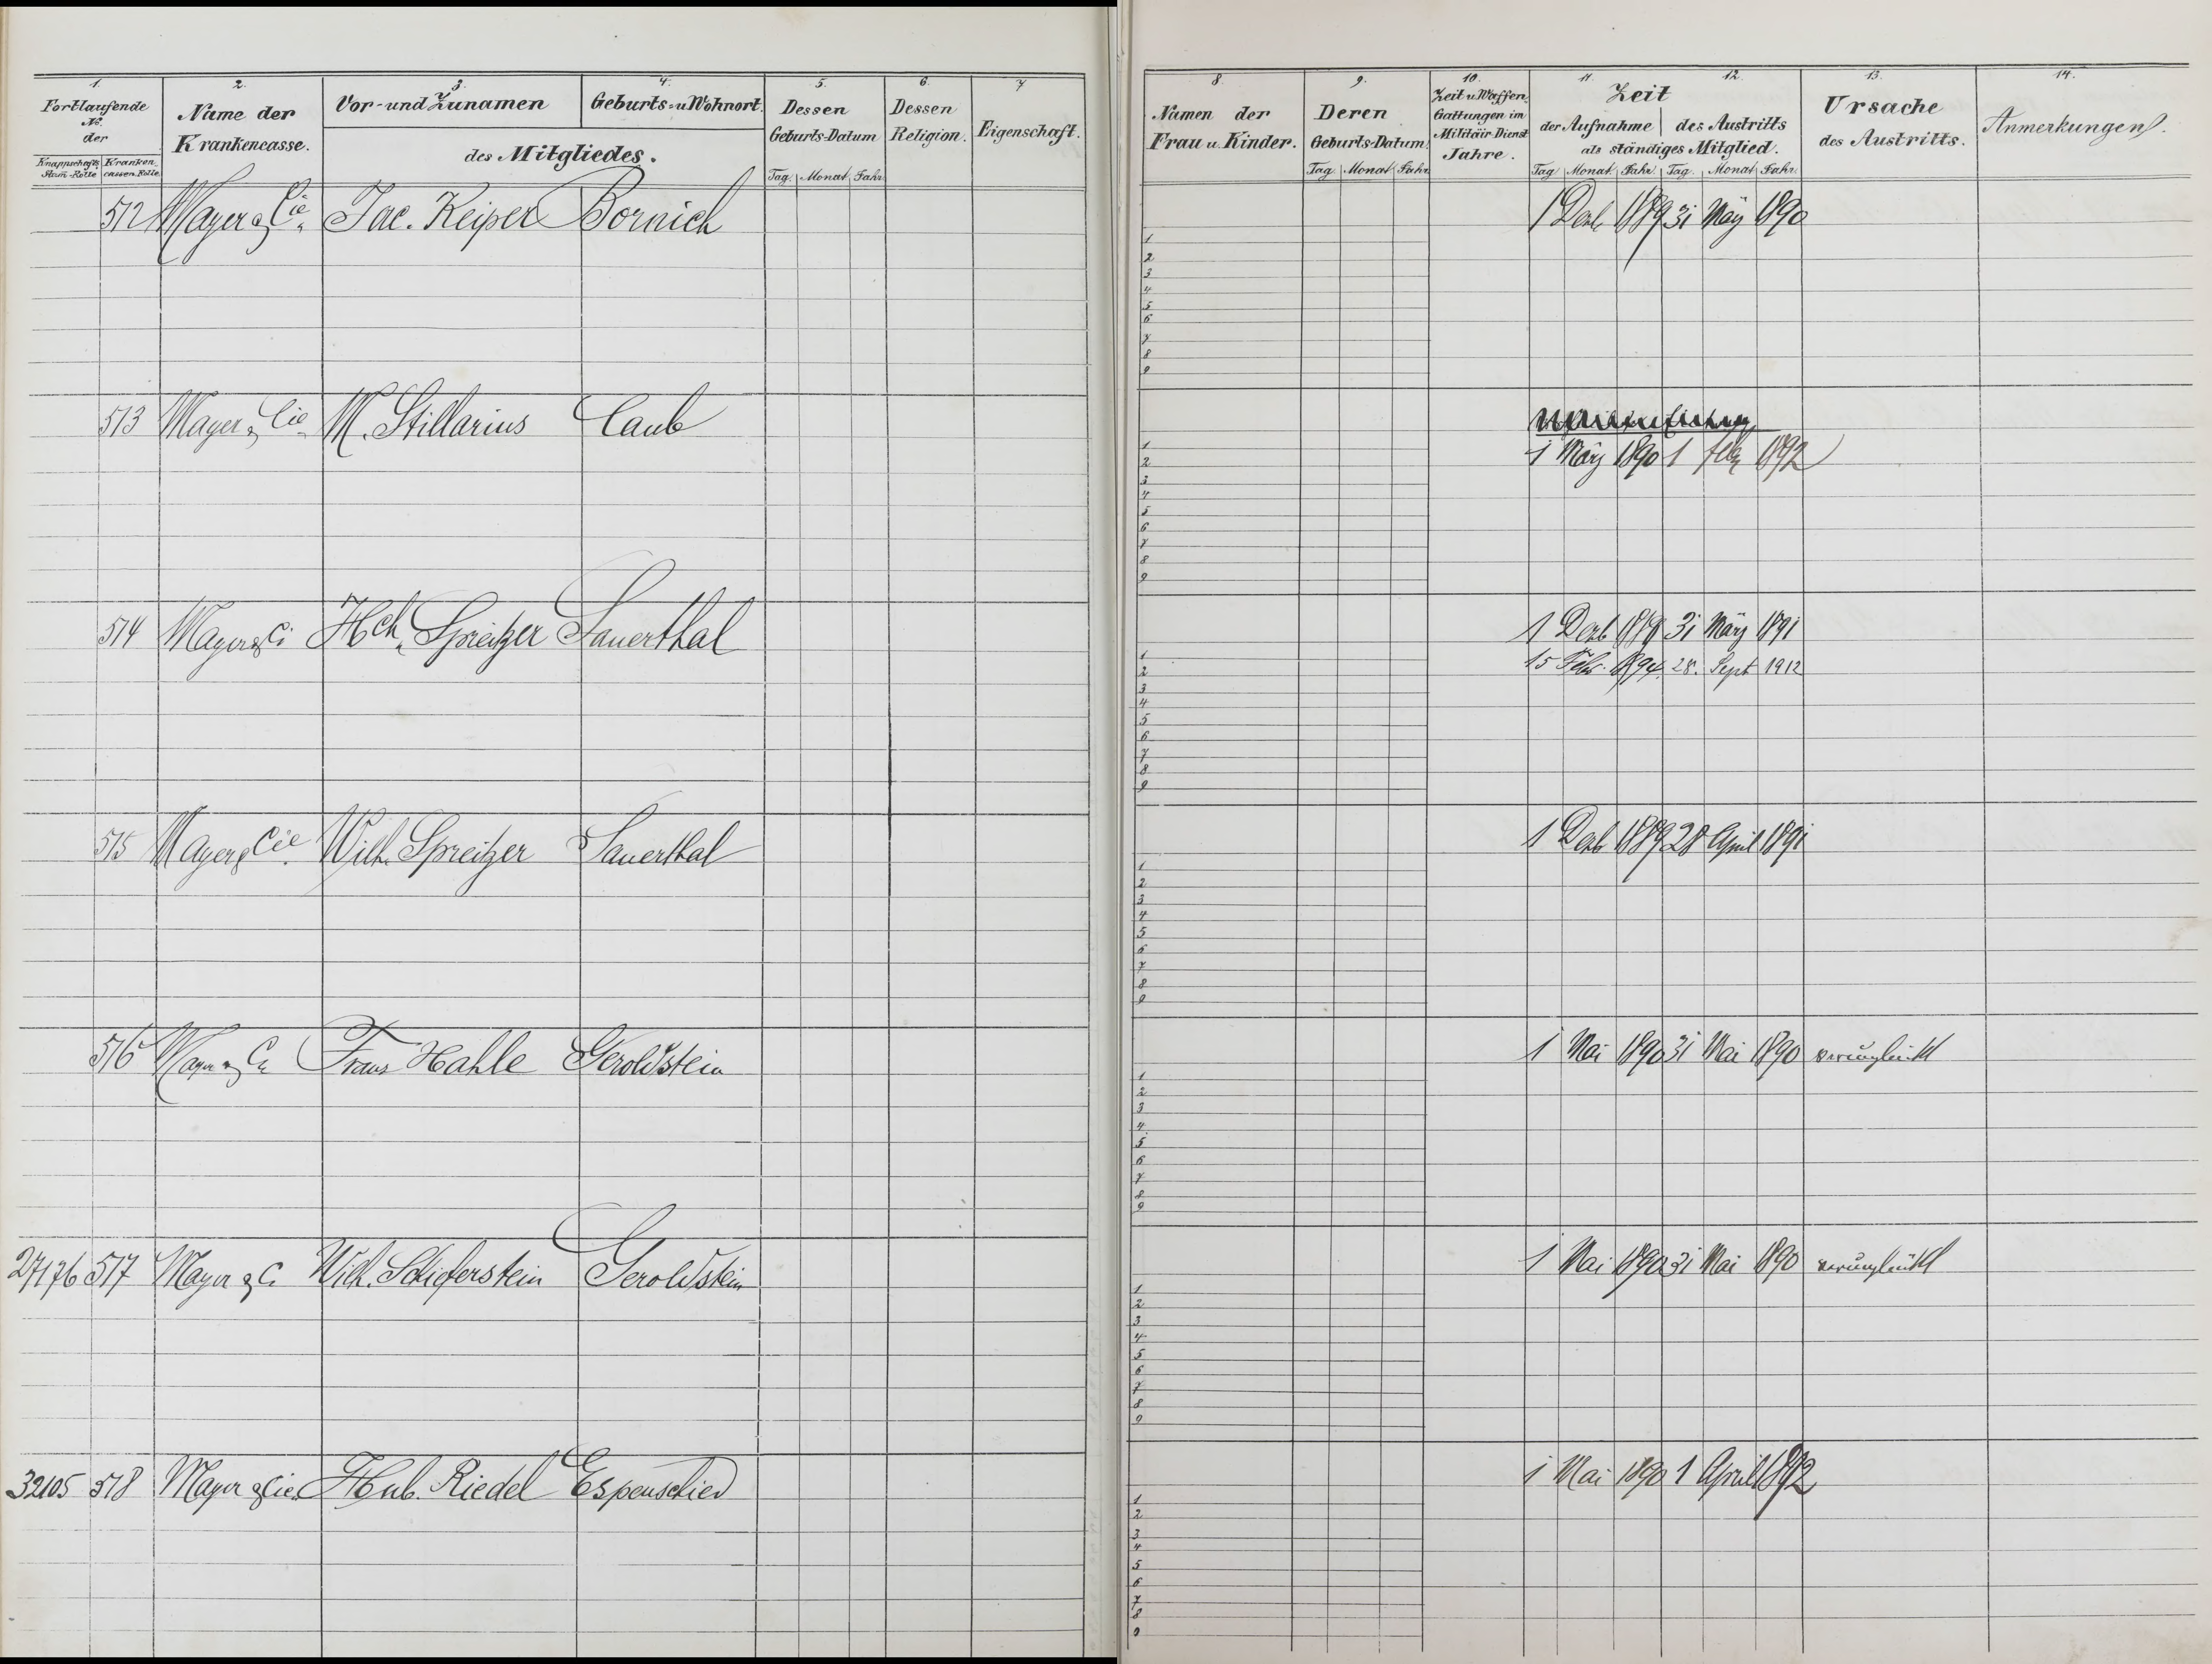 1. 2. 3. 4. 5. 6. 7
Fortlaufende No. der
Knappschafts Stam-Rolle Kranken cassen-Rolle
Name der Krankencasse.
Vor- und Zunamen Geburts- u Wohnort.
des Mitgliedes.
Dessen Geburts-Datum
Tag. Monat Jahr.
Dessen Religion.
Eigenschaft.
512 Mayer & Cie. Jac. Keiper Bornich
513 Mayer & Cie. M. Stillarius Caub
514 Mayer & Ci Hch. Spreitzer Sauerthal
515 Mayer & Cie. Wilh. Spreitzer Sauerthal
516 Mayer & Ci Franz Hahle Geroldstein
27176 517 Mayer & C. Wilh. Schieferstein Geroldstein
32105 518 Mayer & Cie. Hub. Riedel Espenschied
8. 9. 10. 11. 12. 13. 14.
Namen der Frau u. Kinder.
Deren Geburts-Datum.
Tag. Monat Jahr.
Zeit u. Waffen Gattungen im Militair-Dienst Jahre.
Zeit
der Aufnahme des Austritts
als ständiges Mitglied.
Tag Monat Jahr Tag. Monat Jahr.
Ursache des Austritts.
Anmerkungen.
1 Dezb 1889 31 May 1890
1
2
3
4
5
6
7
8
9
1 März 1890 1 Febr 1892
1
2
3
4
5
6
7
8
9
1 Dezb 1889 31 März 1891
15 Febr. 1894. 28. Sept 1912
1
2
3
4
5
6
7
8
9
1 Dezb 1889 28 April 1891
1
2
3
4
5
6
7
8
9
1 Mai 1890 31 Mai 1890 verunglückt
1
2
3
4
5
6
7
8
9
1 Mai 1890 31 Mai 1890 verunglückt
1
2
3
4
5
6
7
8
9
1 Mai 1890 1 April 1892
1
2
3
4
5
6
7
8
9